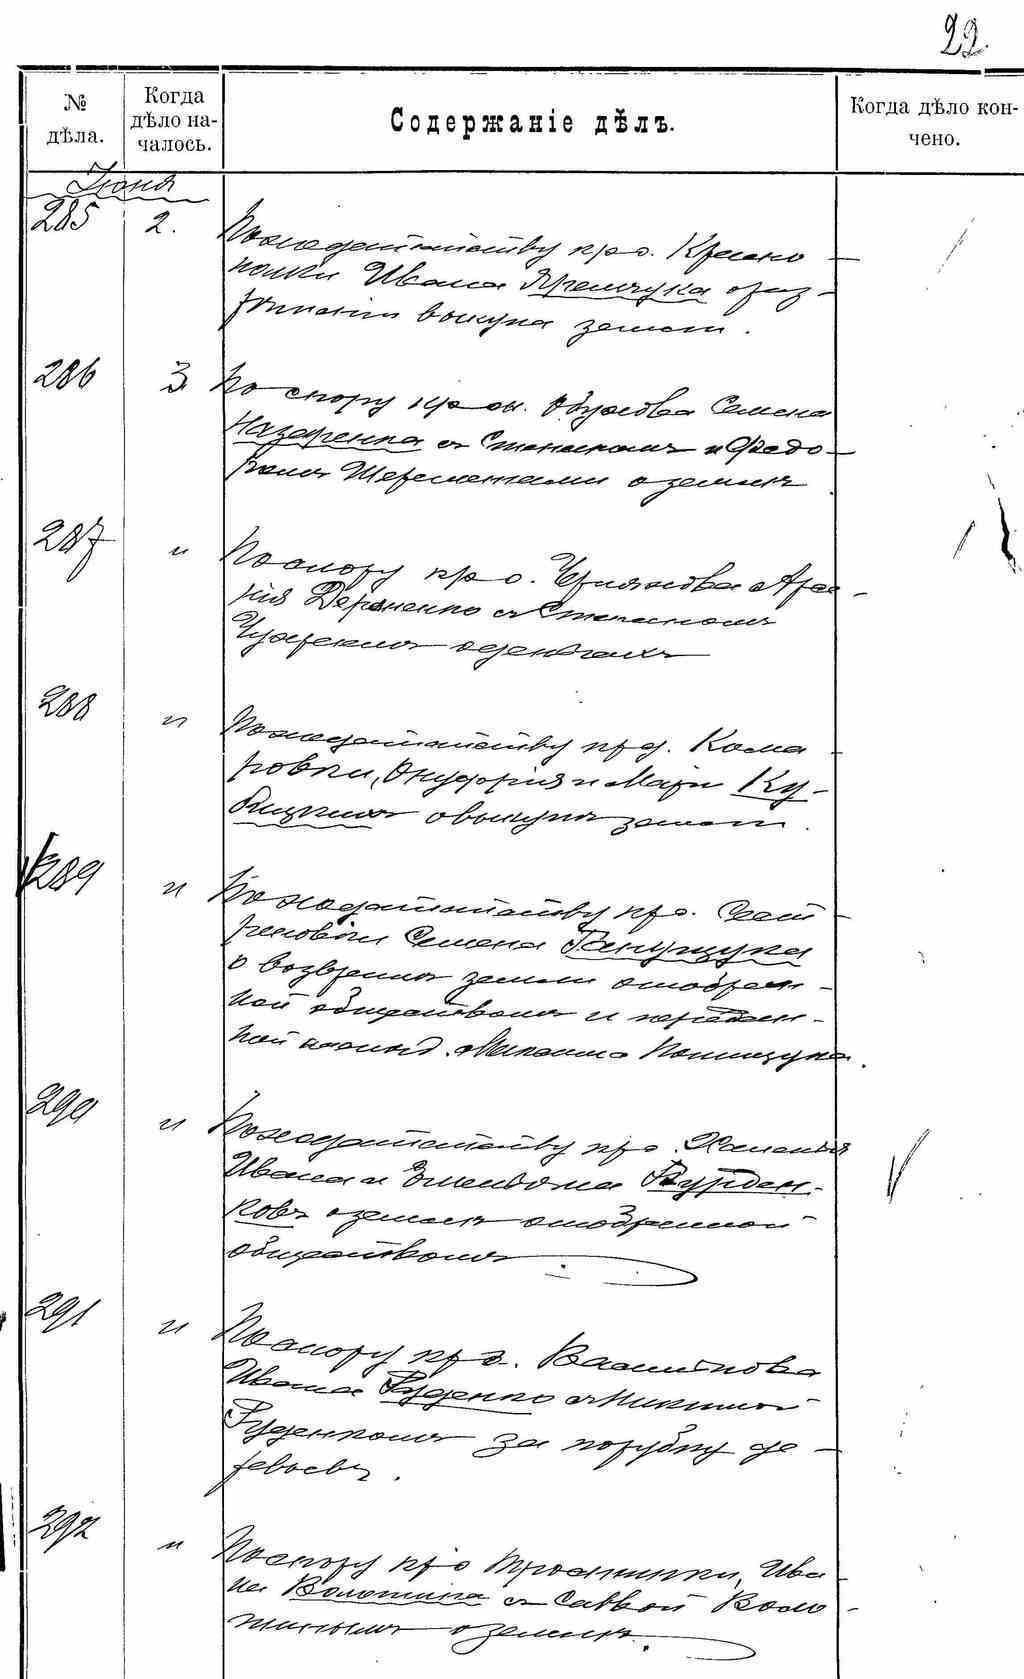 22.
№ дѣла.
Когда дѣло началось.
Содержаніе дѣлъ.
Когда дѣло кончено.
Іюня
285 2. По ходатайству кр. с.
Ивана Яремчука о раз-
выкупа земли.
286 3 По спору кр. с. Обухова Семена
Назаренка съ Степаномъ и Федо-
ромъ Шереметами о землѣ
287 " По спору кр. с. Черняхова Арсе-
нія съ Степаномъ
о деньгахъ
288 " По ходатайству кр. д. Кома
ровки, Онуфрія и Маріи Ку-
бицкихъ о выкупѣ земли.
289 " По ходатайству кр. с.
Семена Ганущука
о возвратѣ земли отобран-
ной обществомъ и передан-
ной Максима Понищука.
290 " По ходатайству кр. с. Халепья
Ивана и Бурден-
ковъ о землѣ отобранной
обществомъ
291 " По спору кр. с. Васильнова
Ивана Руденко съ Никитой
Руденкомъ за порубку де
ревьевъ.
292 " По спору кр. с. Тростинки, Ива-
на Волошина съ Саввой Воло
шинымъ о землѣ.